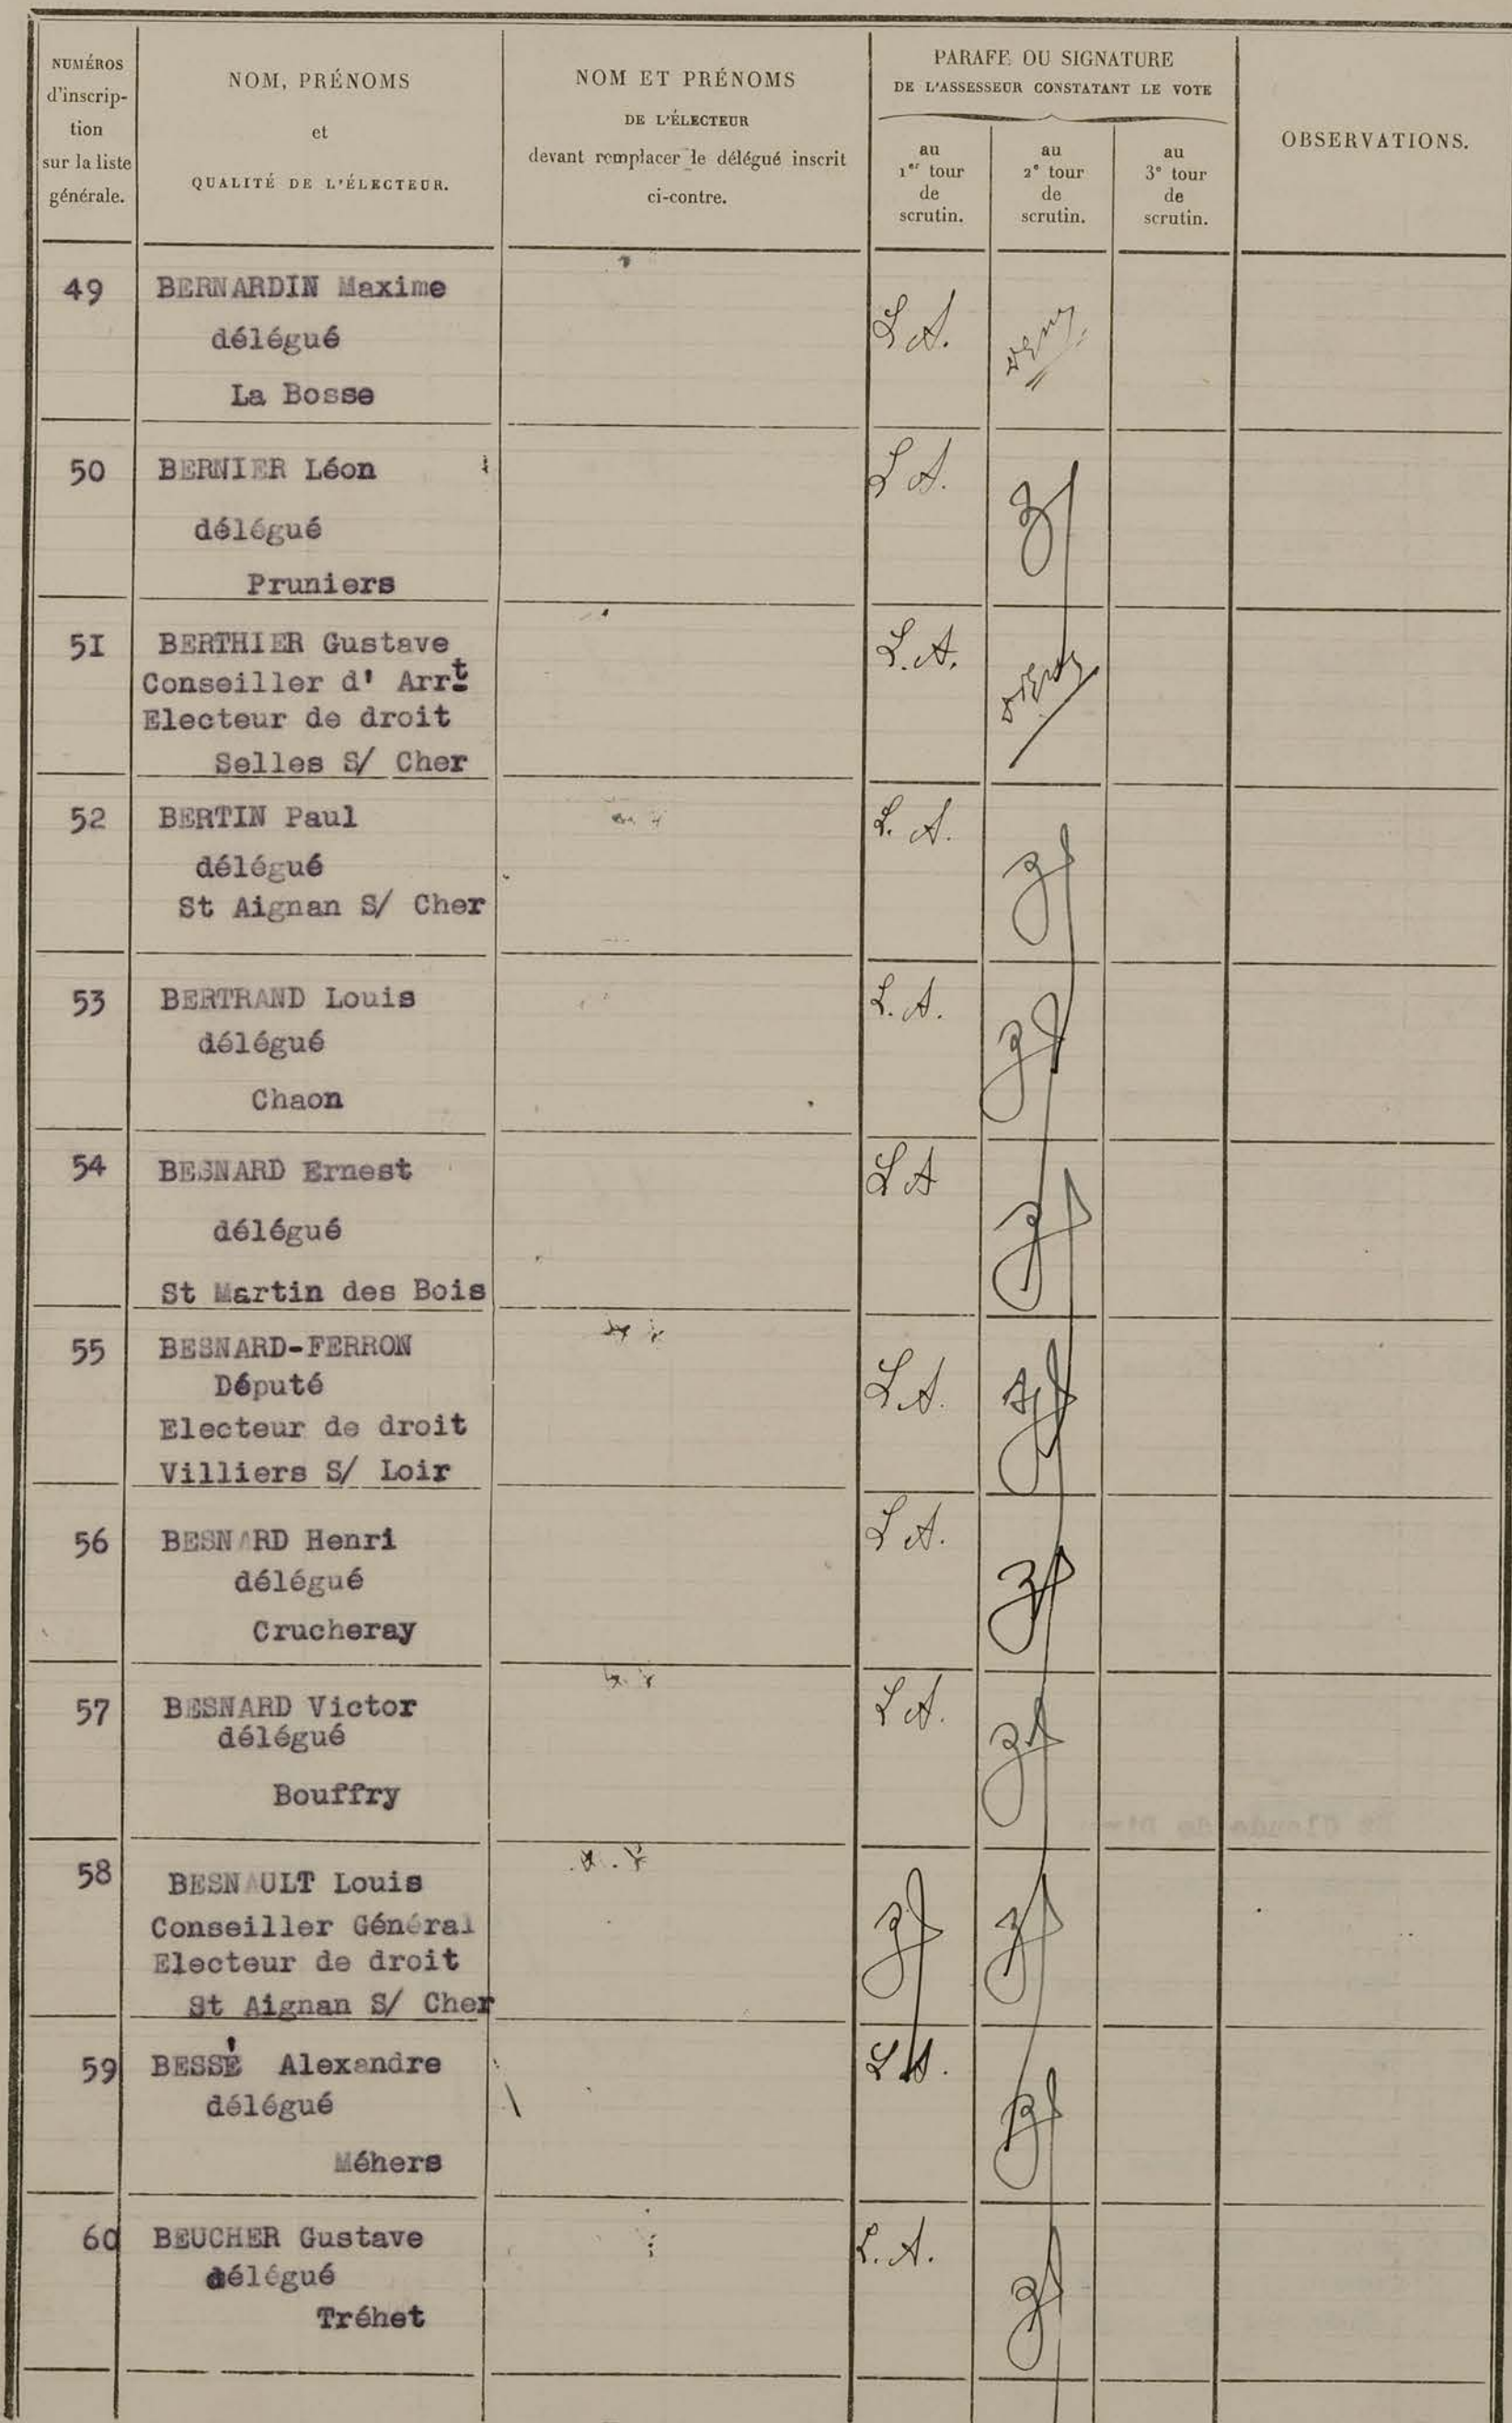 NUMÉROS
d'inscrip-
tion
sur la liste
générale.
NOM, PRÉNOMS
et
QUALITÉ DE L'ÉLECTEUR.
NOM ET PRÉNOMS
DE L'ÉLECTEUR
devant remplacer le délégué inscrit
ci-contre.
PARAFE OU SIGNATURE
DE L'ASSESSEUR CONSTATANT LE VOTE
au
1er tour
de
scrutin.
au
2e tour
de
scrutin.
au
3e tour
de
scrutin.
OBSERVATIONS.
49 BERNARDIN Maxime
délégué
L A.
La Bosse
50 BERNIER Léon L A.
délégué
Pruniers
5I BERTHIER Gustave L. A.
Conseiller d' Arrt
Electeur de droit
Selles S/ Cher
52 BERTIN Paul L. A.
délégué
St Aignan S/ Cher
53 BERTRAND Louis L. A.
délégué
Chaon
54 BESNARD Ernest L A
délégué
St Martin des Bois
55 BESNARD-FERRON
Député L A.
Electeur de droit
Villiers S/ Loir
56 BESNARD Henri L A.
délégué
Crucheray
57 BESNARD Victor L A.
délégué
Bouffry
58 BESNAULT Louis
Conseiller Général
Electeur de droit
St Aignan S/ Cher
59 BESSÉ Alexandre L A.
délégué
Méhers
60 BEUCHER Gustave L. A.
délégué
Tréhet